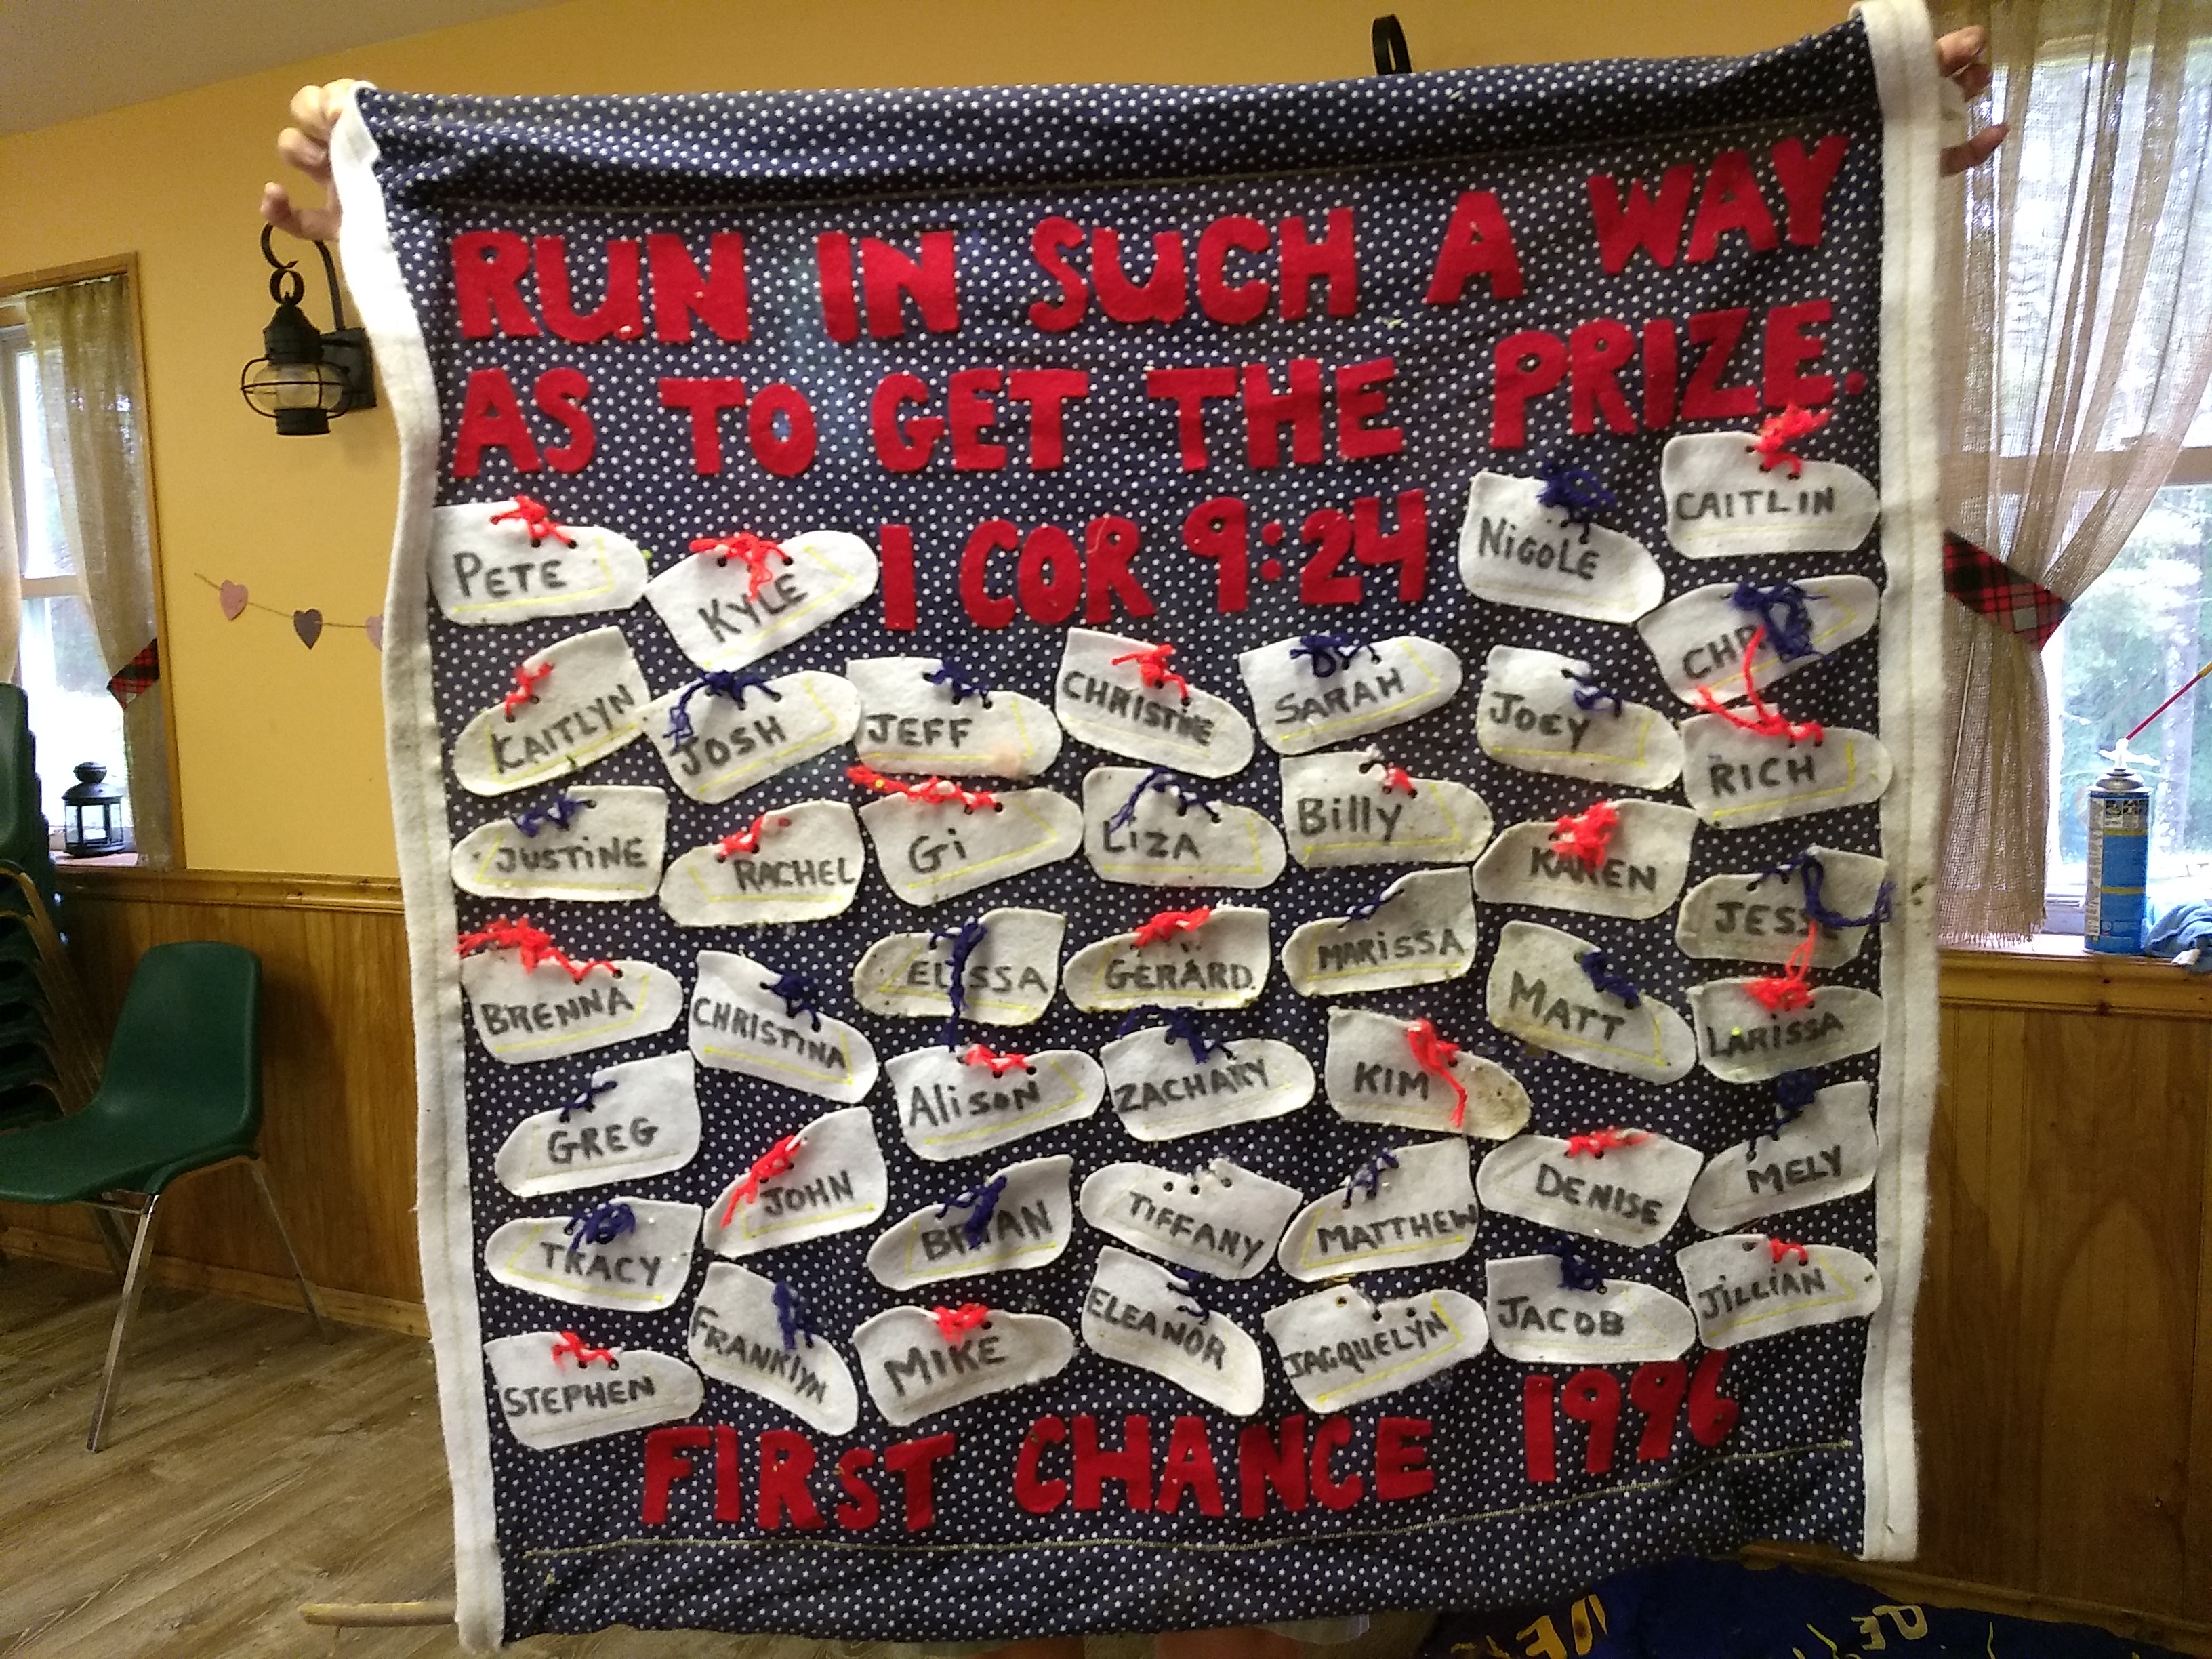 RUN IN SUCH A WAY
AS TO GET THE PRIZE.
1 COR 9:24
PETE
KYLE
NICOLE
CAITLIN
KAITLYN
JOSH
JEFF
CHRISTINE
SARAH
JOEY
RICH
JUSTINE
RACHEL
Gi
LIZA
Billy
KAREN
JESS
BRENNA
CHRISTINA
ELISSA
GERARD
MARISSA
MATT
LARISSA
GREG
Alison
ZACHARY
KIM
JOHN
DENISE
MELY
TRACY
BRIAN
TIFFANY
MATTHEW
STEPHEN
FRANKLYN
MIKE
ELEANOR
JACQUELYN
JACOB
JILLIAN
FIRST CHANCE 1996